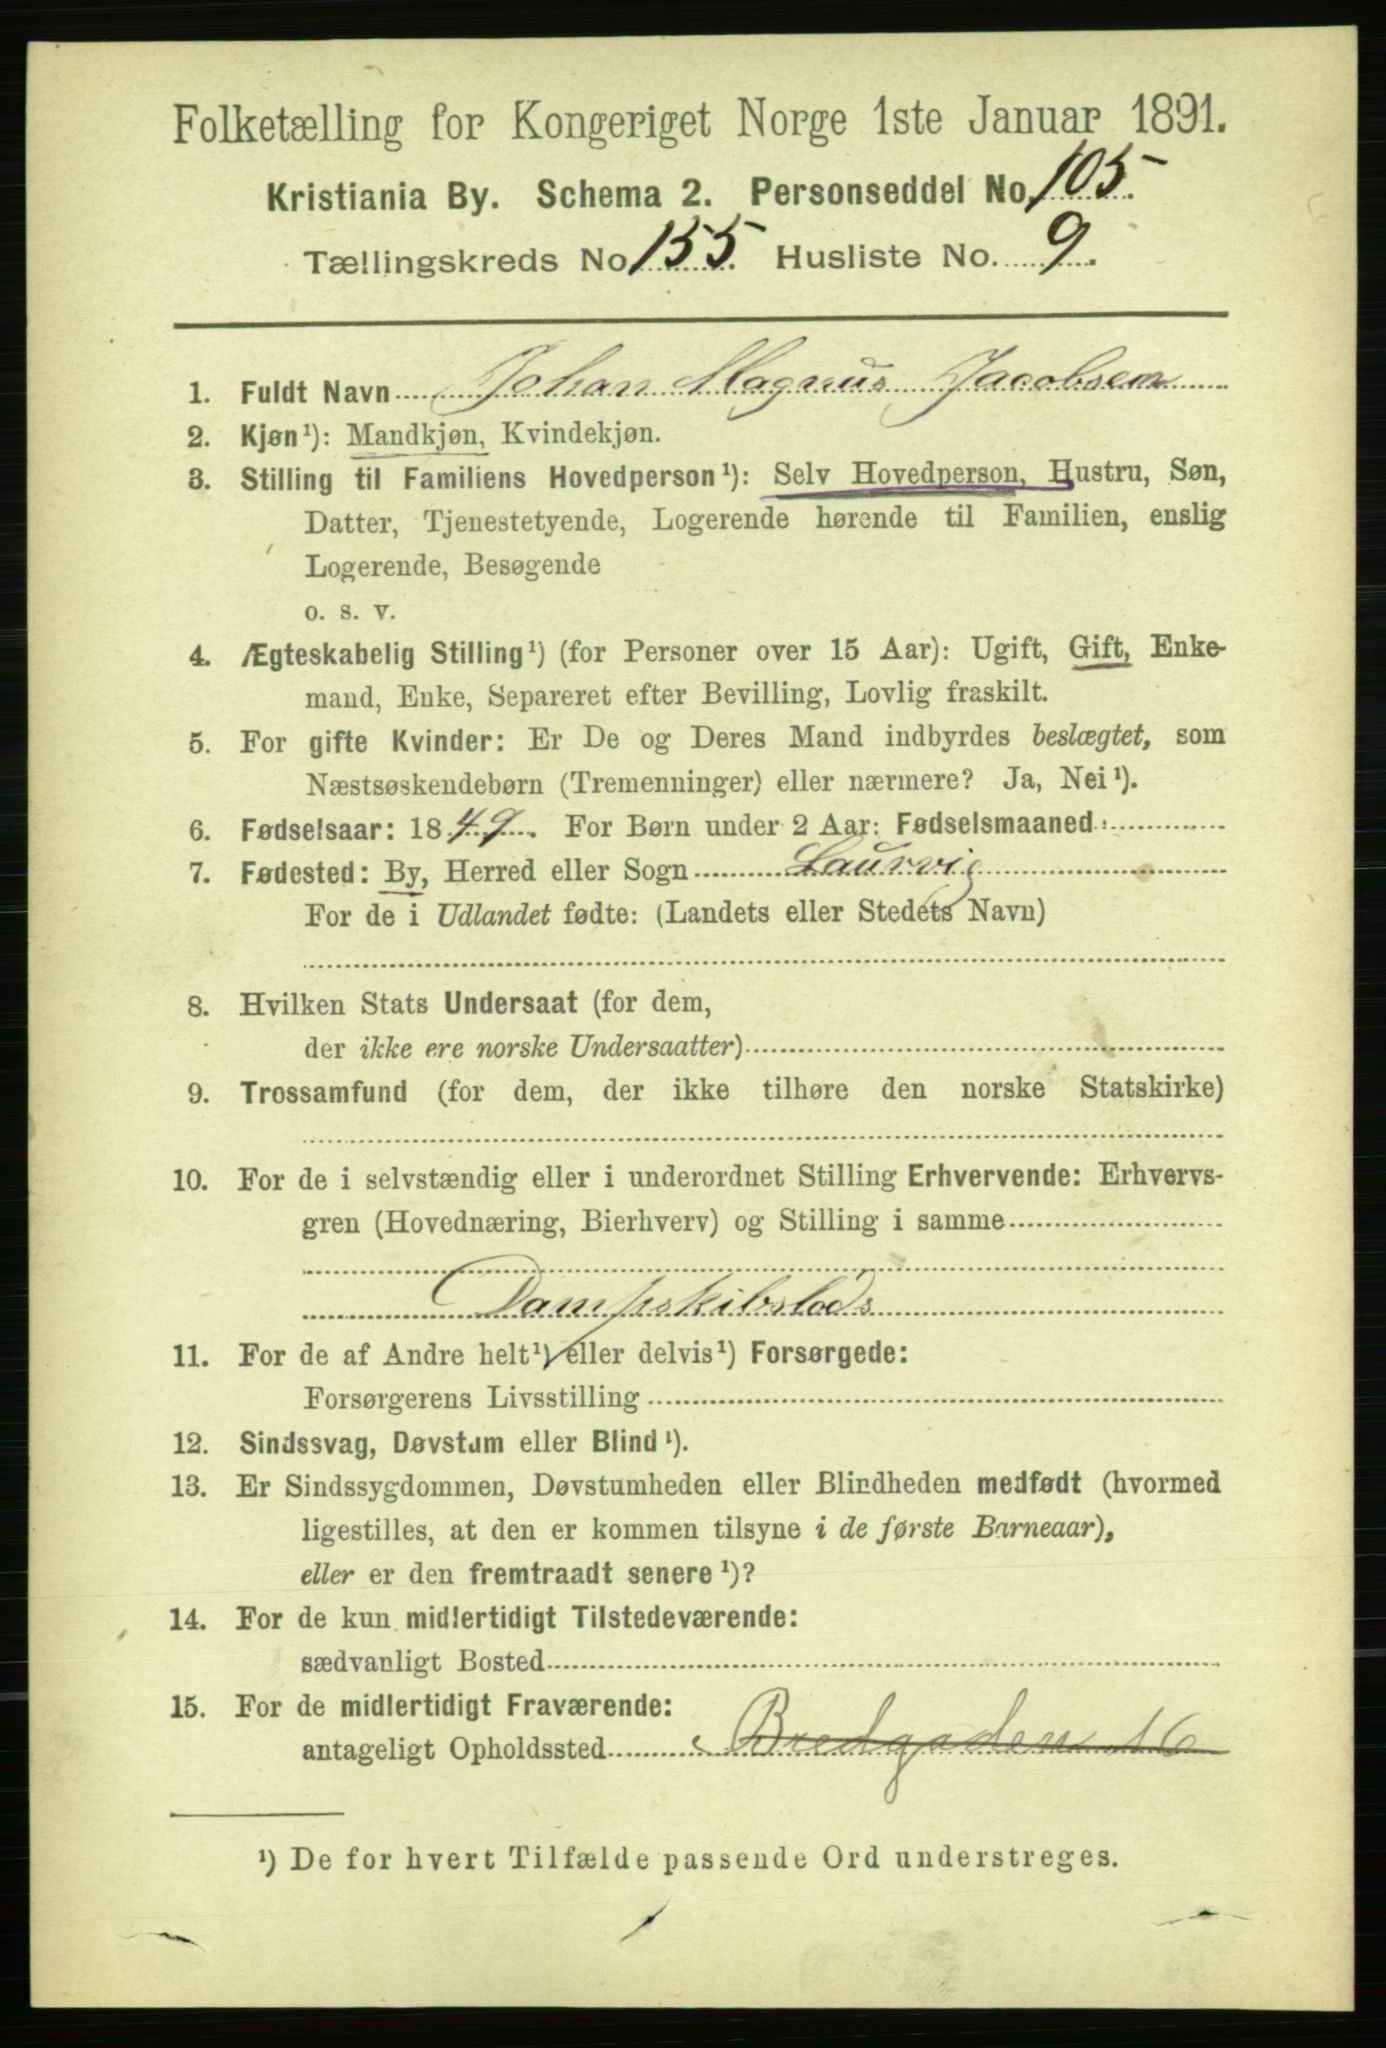 Folketælling for Kongeriget Norge 1ste Januar 1891.
Kristiania By. Schema 2. Personseddel No. 105.
Tællingskreds No. 155. Husliste No. 9.
1. Fuldt Navn Johan Magnus Jacobsen
2. Kjøn¹): Mandkjøn, Kvindekjøn.
3. Stilling til Familiens Hovedperson¹): Selv Hovedperson, Hustru, Søn,
Datter, Tjenestetyende, Logerende hørende til Familien, enslig
Logerende, Besøgende
o. s. v.
4. Ægteskabelig Stilling¹) (for Personer over 15 Aar): Ugift, Gift, Enke-
mand, Enke, Separeret efter Bevilling, Lovlig fraskilt.
5. For gifte Kvinder: Er De og Deres Mand indbyrdes beslægtet, som
Næstsøskendebørn (Tremenninger) eller nærmere? Ja, Nei¹).
6. Fødselsaar: 1849. For Børn under 2 Aar: Fødselsmaaned:
7. Fødested: By, Herred eller Sogn Laurvig
For de i Udlandet fødte: (Landets eller Stedets Navn)
8. Hvilken Stats Undersaat (for dem,
der ikke ere norske Undersaatter)
9. Trossamfund (for dem, der ikke tilhøre den norske Statskirke)
10. For de i selvstændig eller i underordnet Stilling Erhvervende: Erhvervs-
gren (Hovednæring, Bierhverv) og Stilling i samme
Dampskibslods
11. For de af Andre helt¹) eller delvis¹) Forsørgede:
Forsørgerens Livsstilling
12. Sindssvag, Døvstum eller Blind¹).
13. Er Sindssygdommen, Døvstumheden eller Blindheden medfødt (hvormed
ligestilles, at den er kommen tilsyne i de første Barneaar),
eller er den fremtraadt senere¹)?
14. For de kun midlertidigt Tilstedeværende:
sædvanligt Bosted
15. For de midlertidigt Fraværende:
antageligt Opholdssted Bredgaden 16
¹) De for hvert Tilfælde passende Ord understreges.